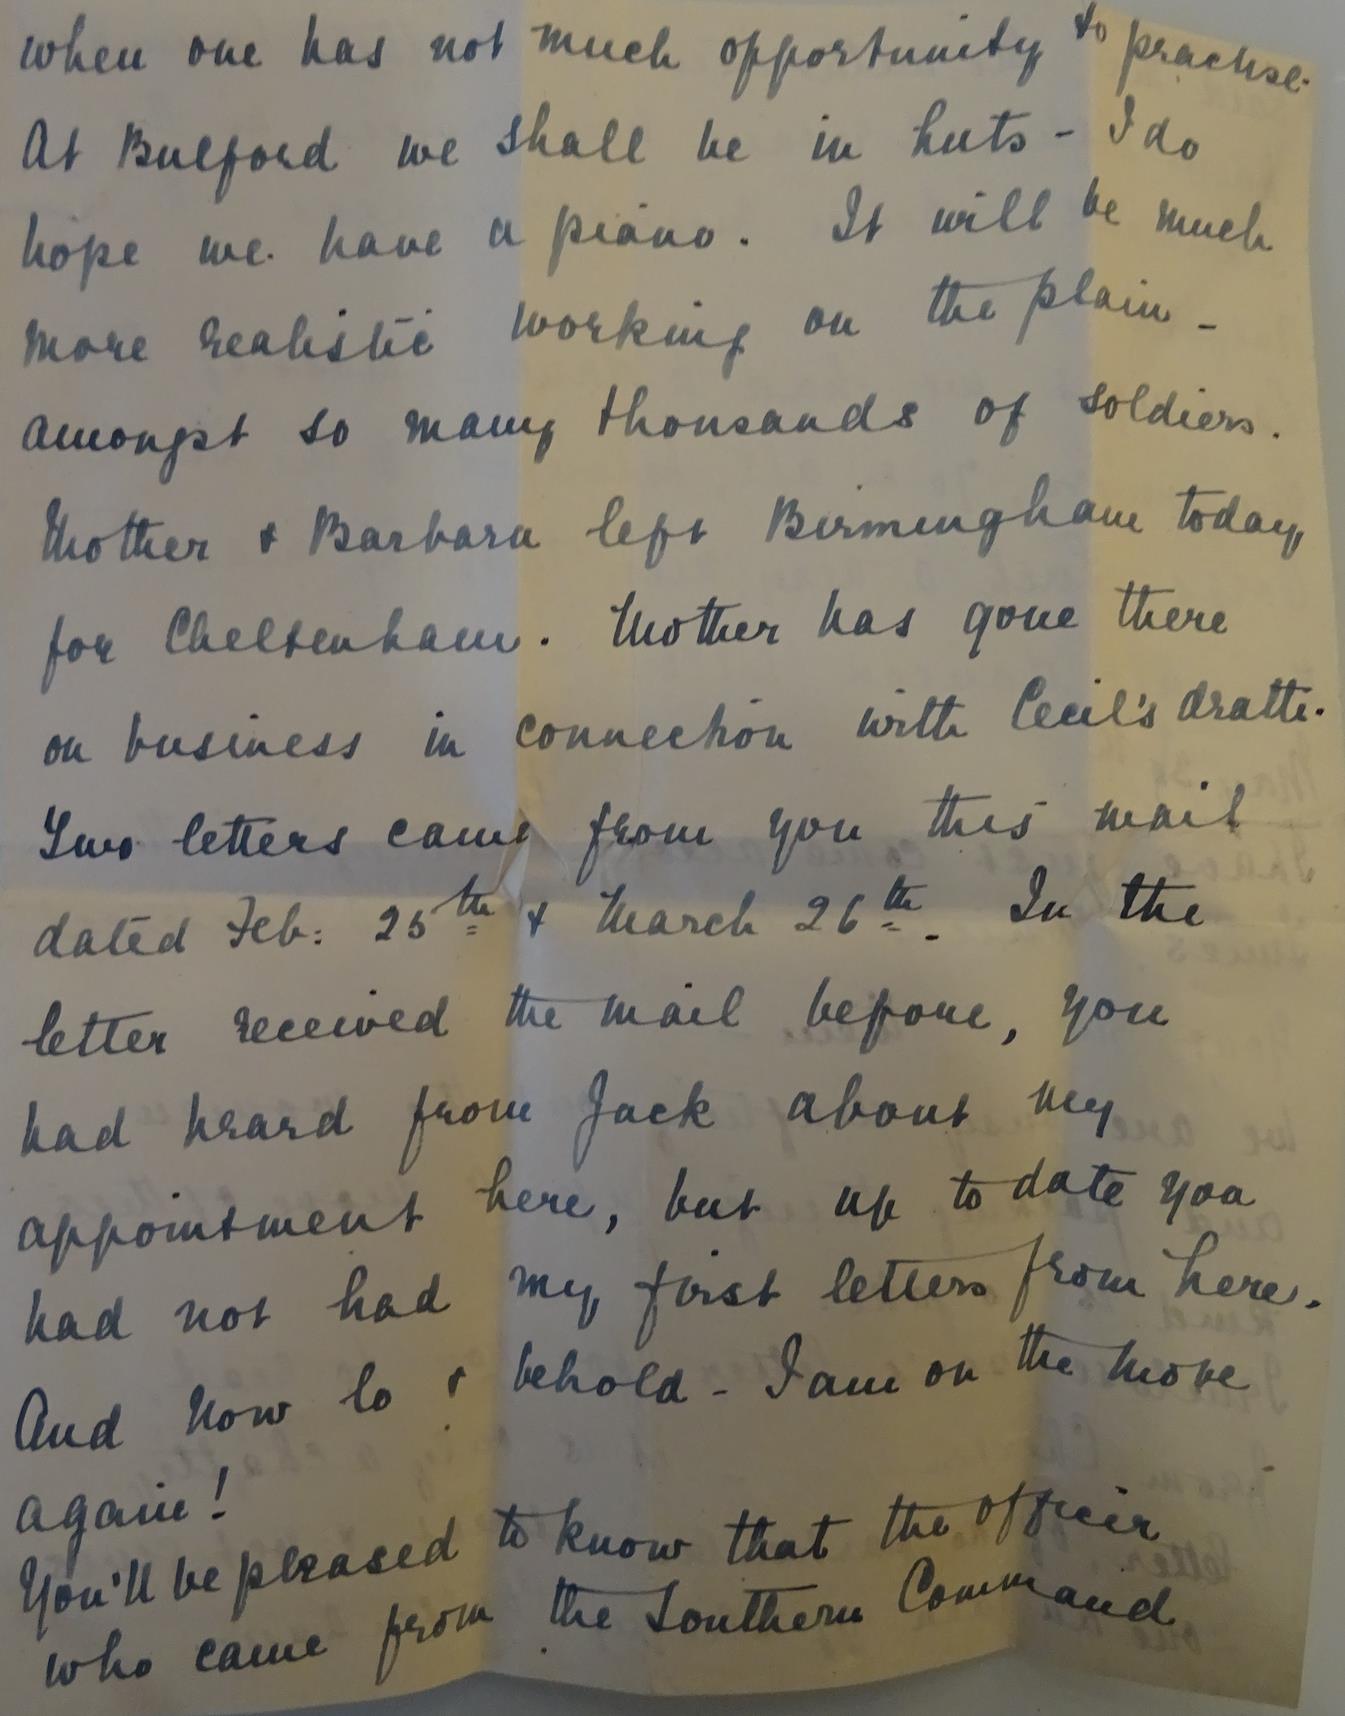 when one has not much opportunity to practise.
At Bulford we shall be in huts - I do
hope we have a piano. It will be much
more realistic working on the plain -
amongst so many thousands of soldiers.
Mother & Barbara left Birmingham today
for Cheltenham. Mother has gone there
on business in connection with Cecil's death.
Two letters came from you this mail
dated Feb: 25th & March 26th. In the
letter received the mail before, you
had heard from Jack about my
appointment here, but up to date you
had not had my first letters from here.
And now lo & behold - I am on the move
again!
You'll be pleased to know that the officer
who came from the Southern Command